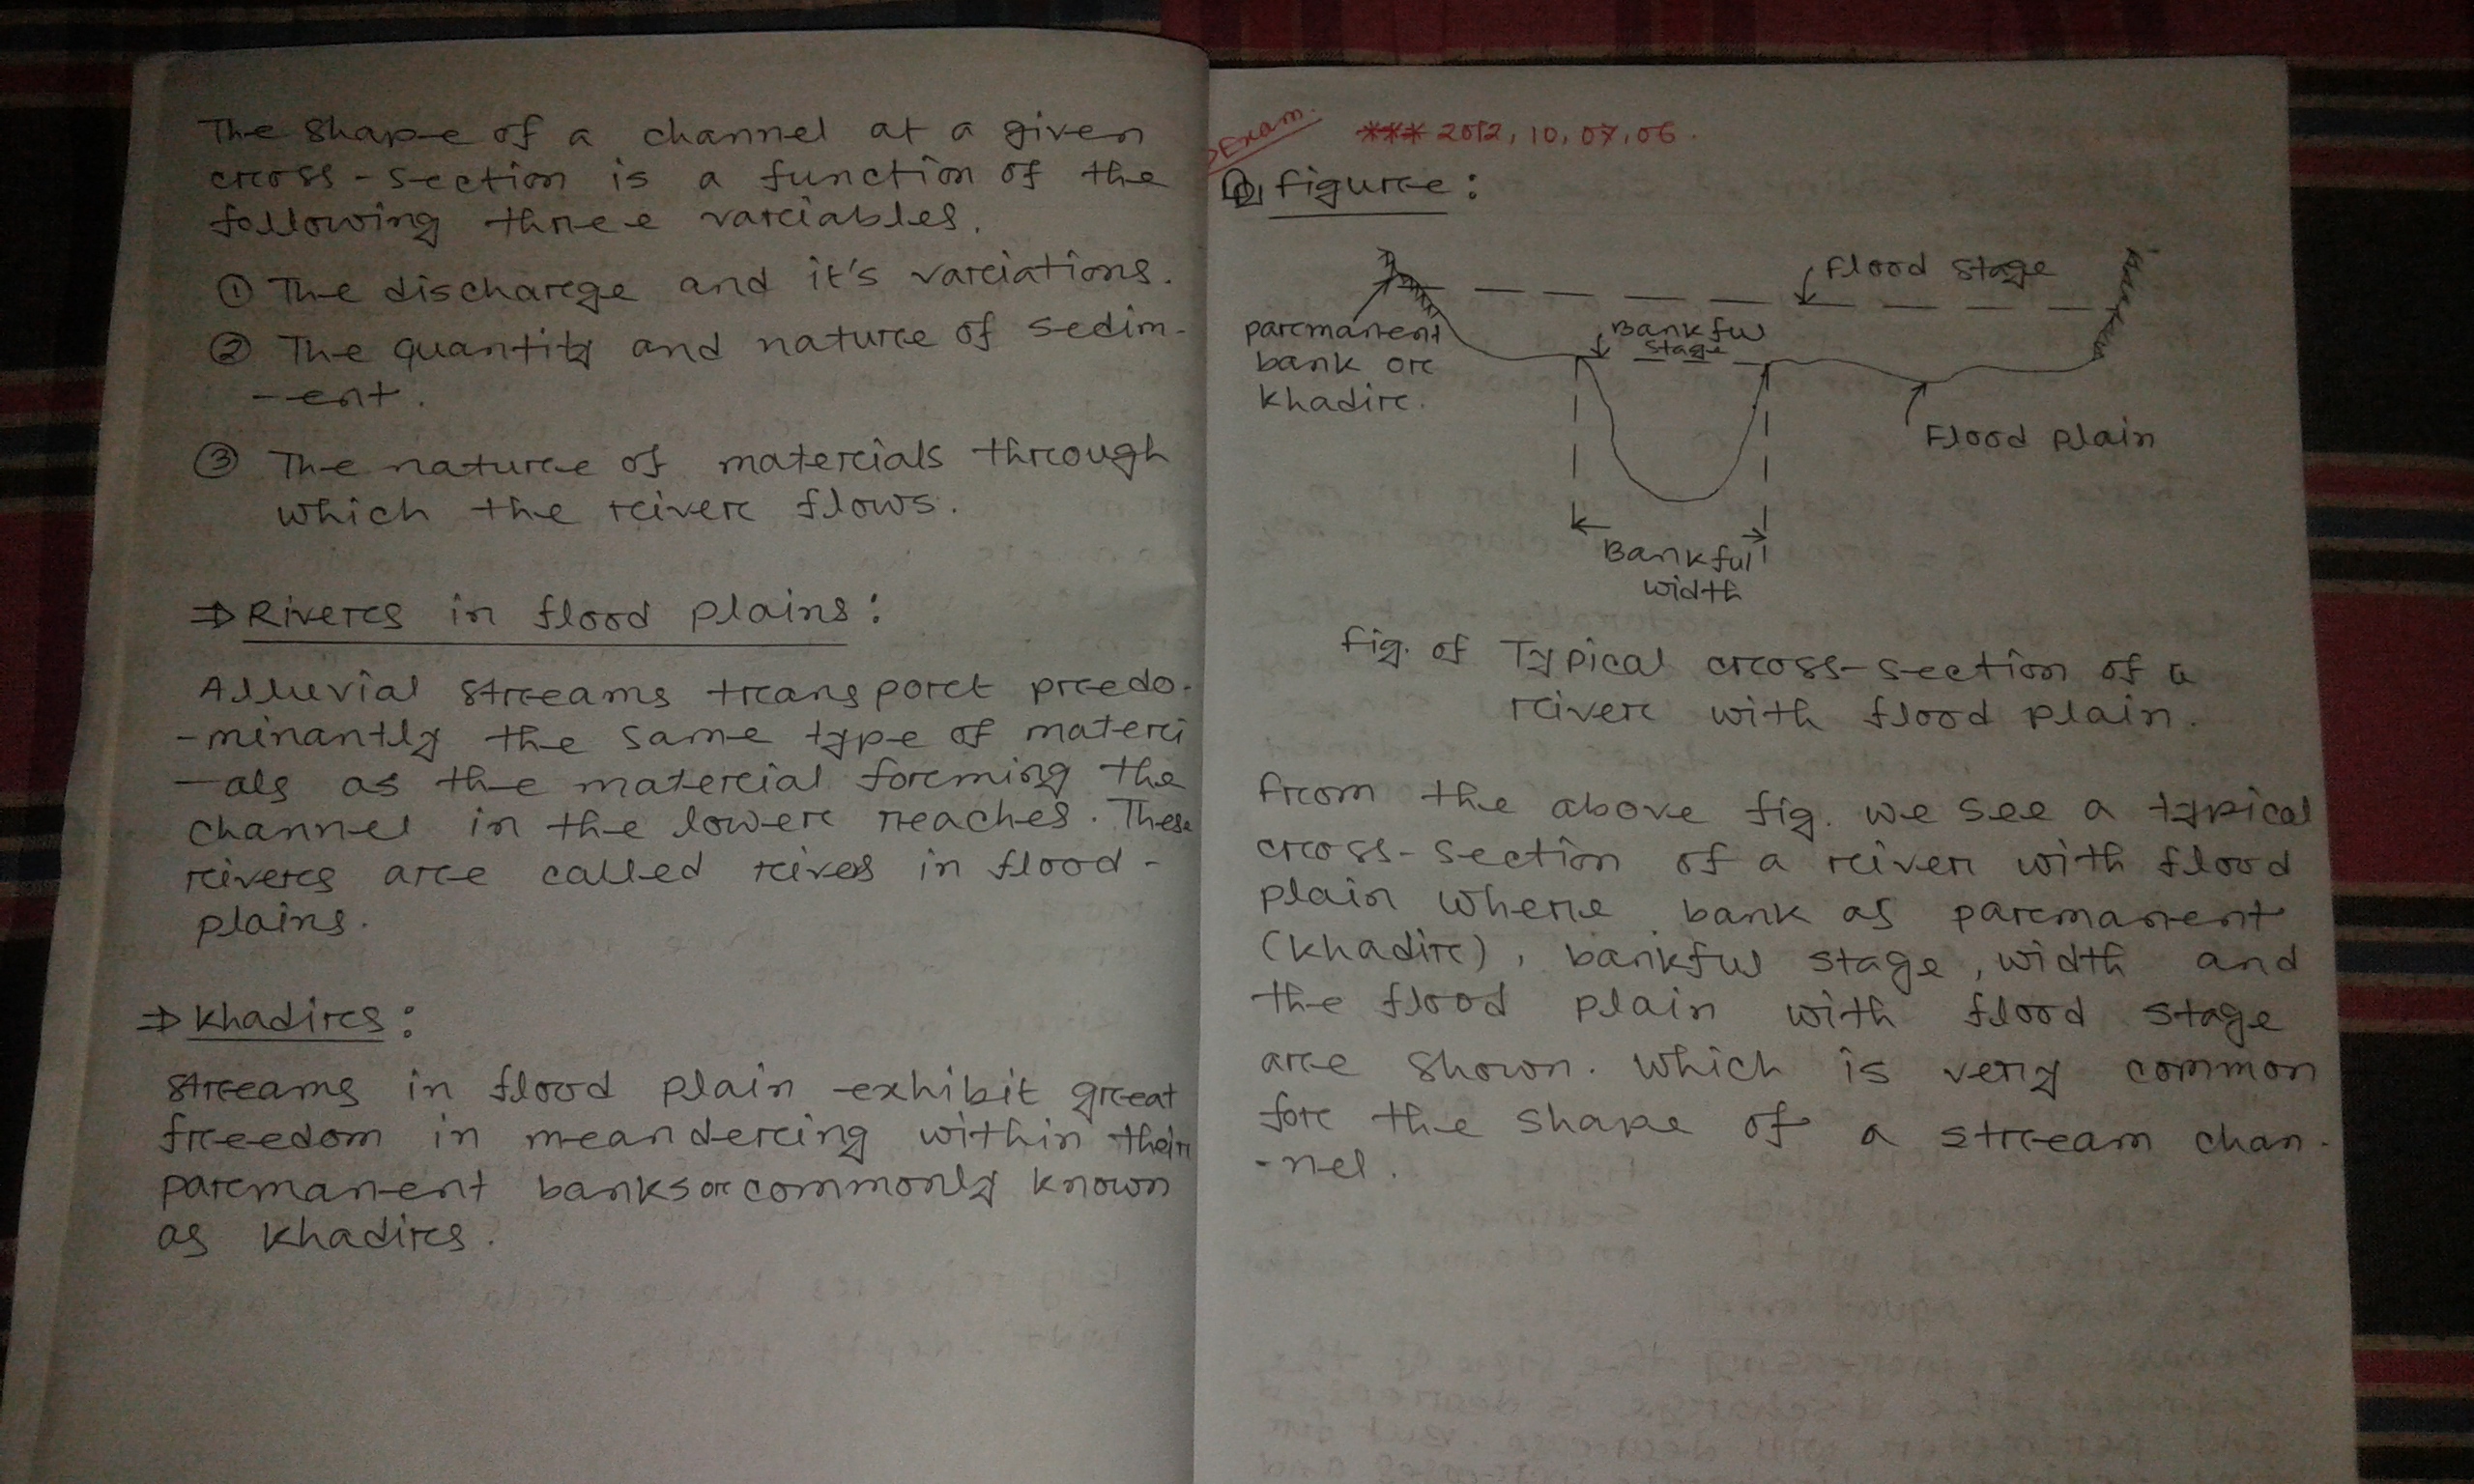 The shape of a channel at a given
cross-section is a function of the
following three variables.
① The discharge and it's variations.
② The quantity and nature of sedim-
-ent.
③ The nature of materials through
which the river flows.
⇒ Rivers in flood plains:
Alluvial streams transport predo-
-minantly the same type of materi
-als as the material forming the
channel in the lower reaches. These
rivers are called rivers in flood-
plains.
⇒ Khadirs:
Streams in flood plain exhibit great
freedom in meandering within their
parmanent banks or commonly known
as khadirs.
Exam.
*** 2012, 10, 07, 06.
figure:
flood stage
parmanent
bank or
khadir.
Bankful
stage
Flood plain
Bankful
width
fig. of Typical cross-section of a
river with flood plain.
from the above fig. we see a typical
cross-section of a river with flood
plain where bank as parmanent
(khadir), bankful stage, width and
the flood plain with flood stage
are shown. which is very common
for the shape of a stream chan-
-nel.